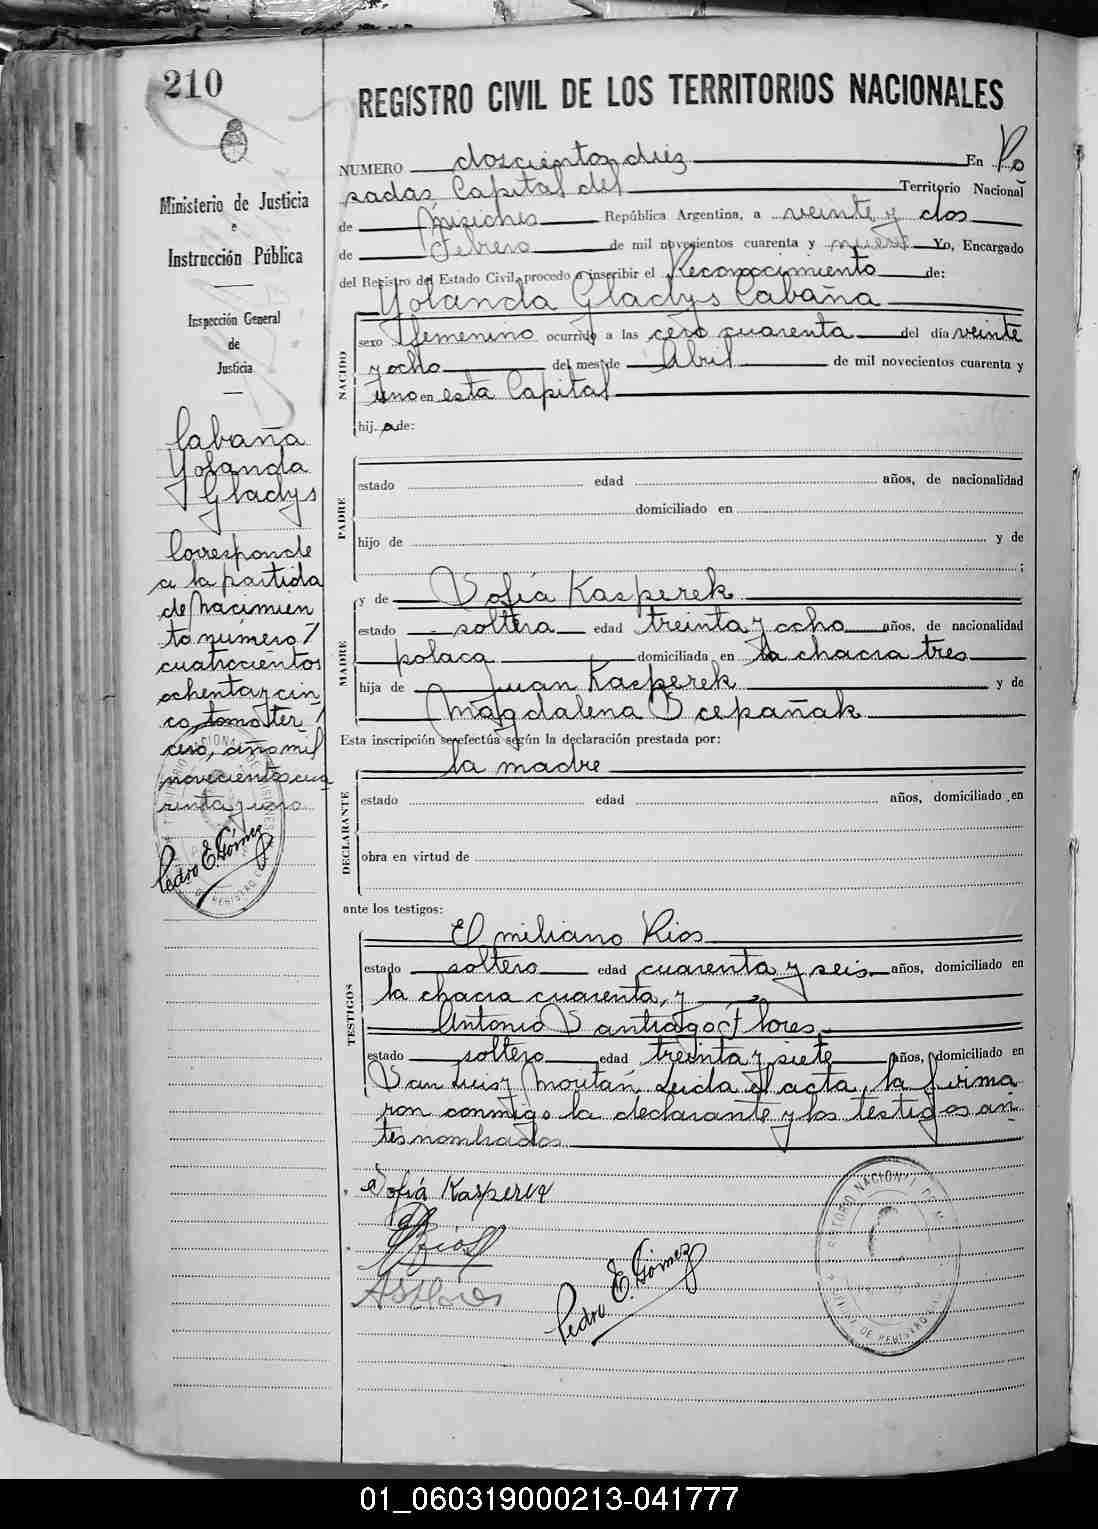 210
REGISTRO CIVIL DE LOS TERRITORIOS NACIONALES
Ministerio de Justicia
e
Instrucción Pública
Inspección General
de
Justicia
Cabaña
Yolanda
Gladys
Corresponde
a la partida
de nacimien
to número
cuatrocientos
ochenta y cin
co, tomo ter
cero, año mil
novecientos cua
renta y uno
Pedro E. Gómez
NUMERO doscientos diez En Po
sadas Capital del Territorio Nacional
de Misiones República Argentina, a veinte y dos
de Febrero de mil novecientos cuarenta y nueve Yo, Encargado
del Registro del Estado Civil, procedo a inscribir el Reconocimiento de:
Yolanda Gladys Cabaña
NACIDO
sexo femenino ocurrido a las cero cuarenta del día veinte
y ocho del mes de Abril de mil novecientos cuarenta y
uno en esta Capital
hij a de:
PADRE
estado edad años, de nacionalidad
domiciliado en
hijo de y de
;
y de Sofía Kasperek
MADRE
estado soltera edad treinta y ocho años, de nacionalidad
polaca domiciliada en la chacra tres
hija de Juan Kasperek y de
Magdalena Scepañak
Esta inscripción se efectúa según la declaración prestada por:
la madre
DECLARANTE
estado edad años, domiciliado en
obra en virtud de
ante los testigos:
Emiliano Rios
TESTIGOS
estado soltero edad cuarenta y seis años, domiciliado en
la chacra cuarenta, y
Antonio Santiago Flores
estado soltero edad treinta y siete años, domiciliado en
San Luis y Leida el acta, la firma
ron conmigo la declarante y los testigos an
tes nombrados
Sofía Kasperek
Rios
ASFlores
Pedro E. Gómez
01_060319000213-041777